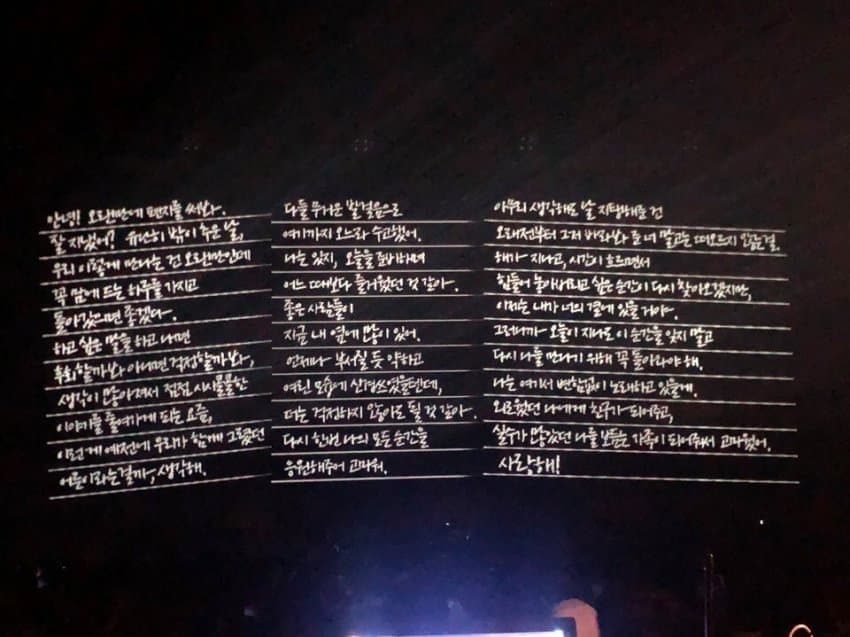 안녕! 오랜만에 편지를 써봐.
잘 지냈어? 유난히 밖이 추운 날,
우리 이렇게 만나는 건 오랜만인데
꼭 맘에 드는 하루를 가지고
돌아갔으면 좋겠다.
하고 싶은 말을 하고 나면
후회할까봐 아니면 걱정할까봐,
생각이 많아져서 점점 시시콜콜한
이야기를 줄여가게 되는 요즘,
이런 게 예전에 우리가 함께 그렸던
어른이라는걸까, 생각해.
다들 무거운 발걸음으로
여기까지 오느라 수고했어.
나는 있지, 오늘을 준비하며
어느 때보다 즐거웠던 것 같아.
좋은 사람들이
지금 내 옆에 많이 있어.
언제나 부서질 듯 약하고
여린 모습에 신경쓰였을텐데,
더는 걱정하지 않아도 될 것 같아.
다시 한번 나의 모든 순간을
응원해주어 고마워.
아무리 생각해도 날 지탱해준 건
오래전부터 그저 바라봐 준 너 말고는 떠오르지 않은걸.
해가 지나고, 시간이 흐르면서
힘들어 놓아버리고 싶은 순간이 다시 찾아오겠지만,
이제는 내가 너의 곁에 있을거야.
그러니까 오늘이 지나도 이 순간을 잊지 말고
다시 나를 만나기 위해 꼭 돌아와야 해.
나는 여기서 변함없이 노래하고 있을게.
외로웠던 나에게 친구가 되어주고,
실수가 많았던 나를 보듬는 가족이 되어줘서 고마웠어.
사랑해!